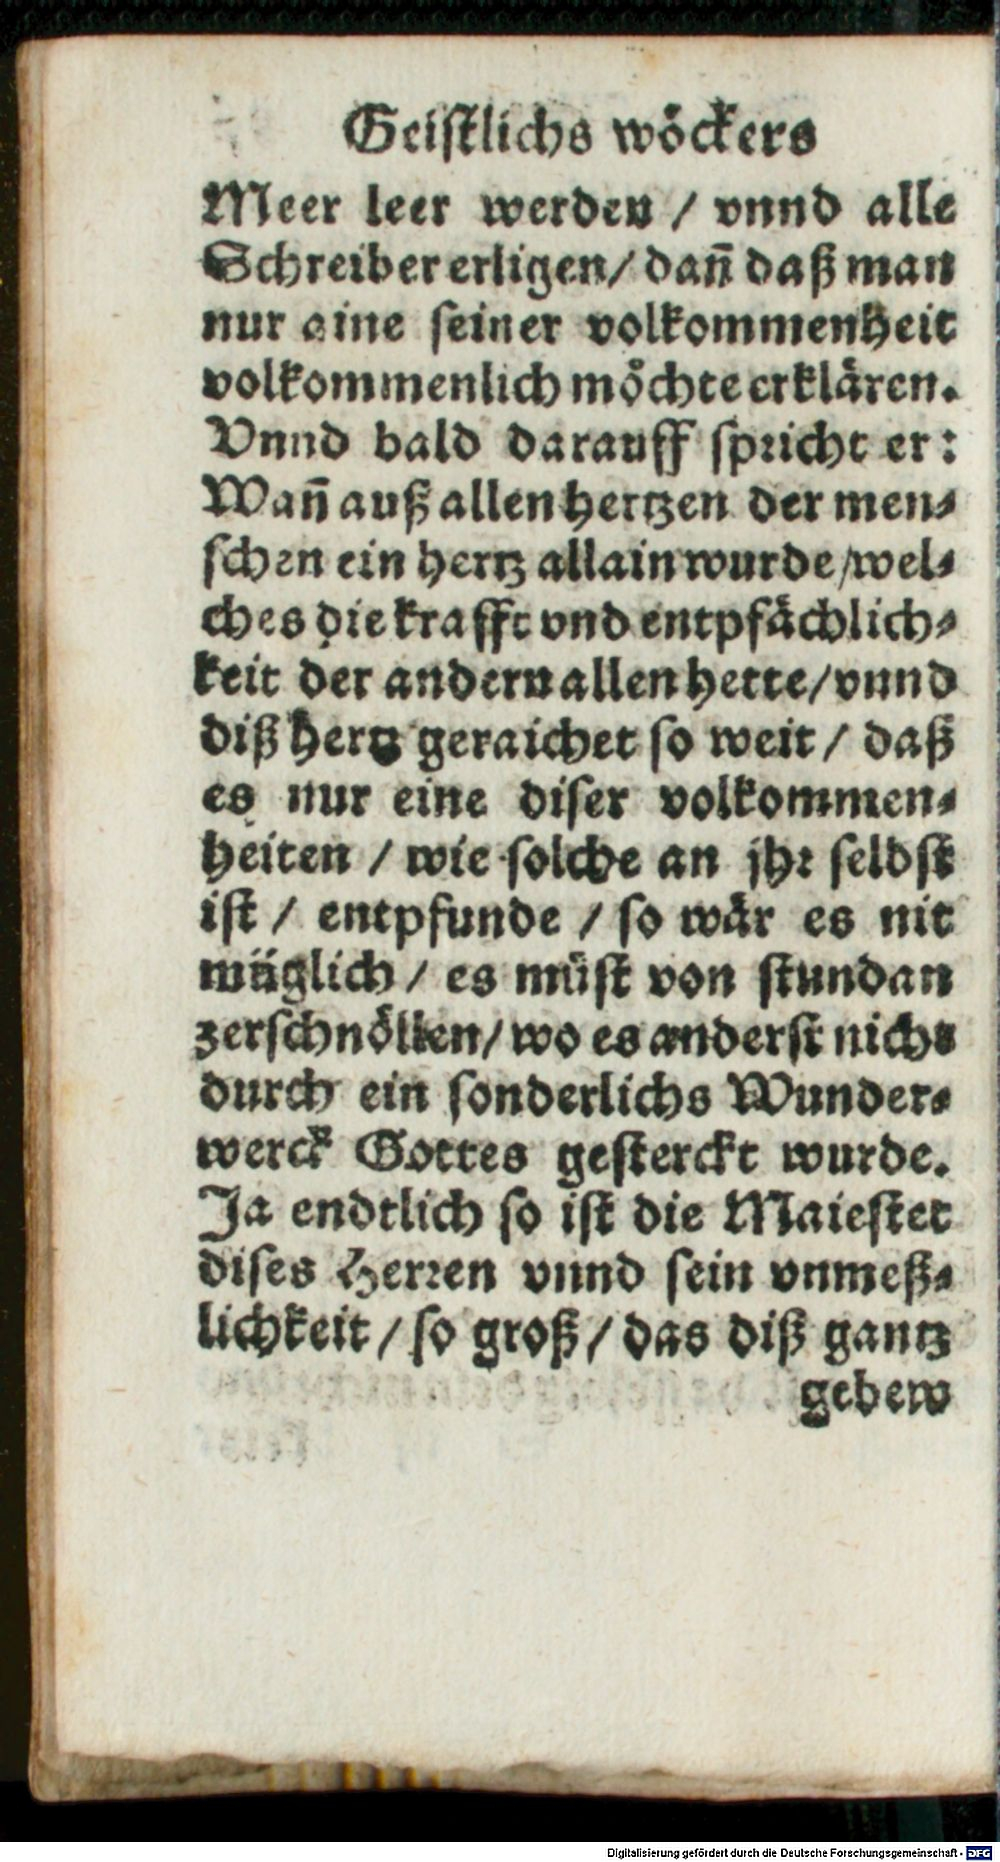 Geistlichs wöckers
Meer leer werden / vnnd alle
Schreiber erligen / dañ daß man
nur eine seiner volkommenheit
volkommenlich möchte erklären.
Vnnd bald darauff spricht er:
Wañ auß allen hertzen der men⸗
schen ein hertz allain wurde / wel⸗
ches die krafft vnd entpfächlich⸗
keit der andern allen hette / vnnd
diß hertz geraichet so weit / daß
es nur eine diser volkommen⸗
heiten / wie solche an jhr selbst
ist / entpfunde / so wär es nit
müglich / es müst von stundan
zerschnöllen / wo es anderst nichs
durch ein sonderlichs Wunder⸗
werck Gottes gesterckt wurde.
Ja endtlich so ist die Maiestet
dises Herren vnnd sein vnmeß⸗
lichkeit / so groß / das diß gantz
gebew
Digitalisierung gefördert durch die Deutsche Forschungsgemeinschaft - DFG